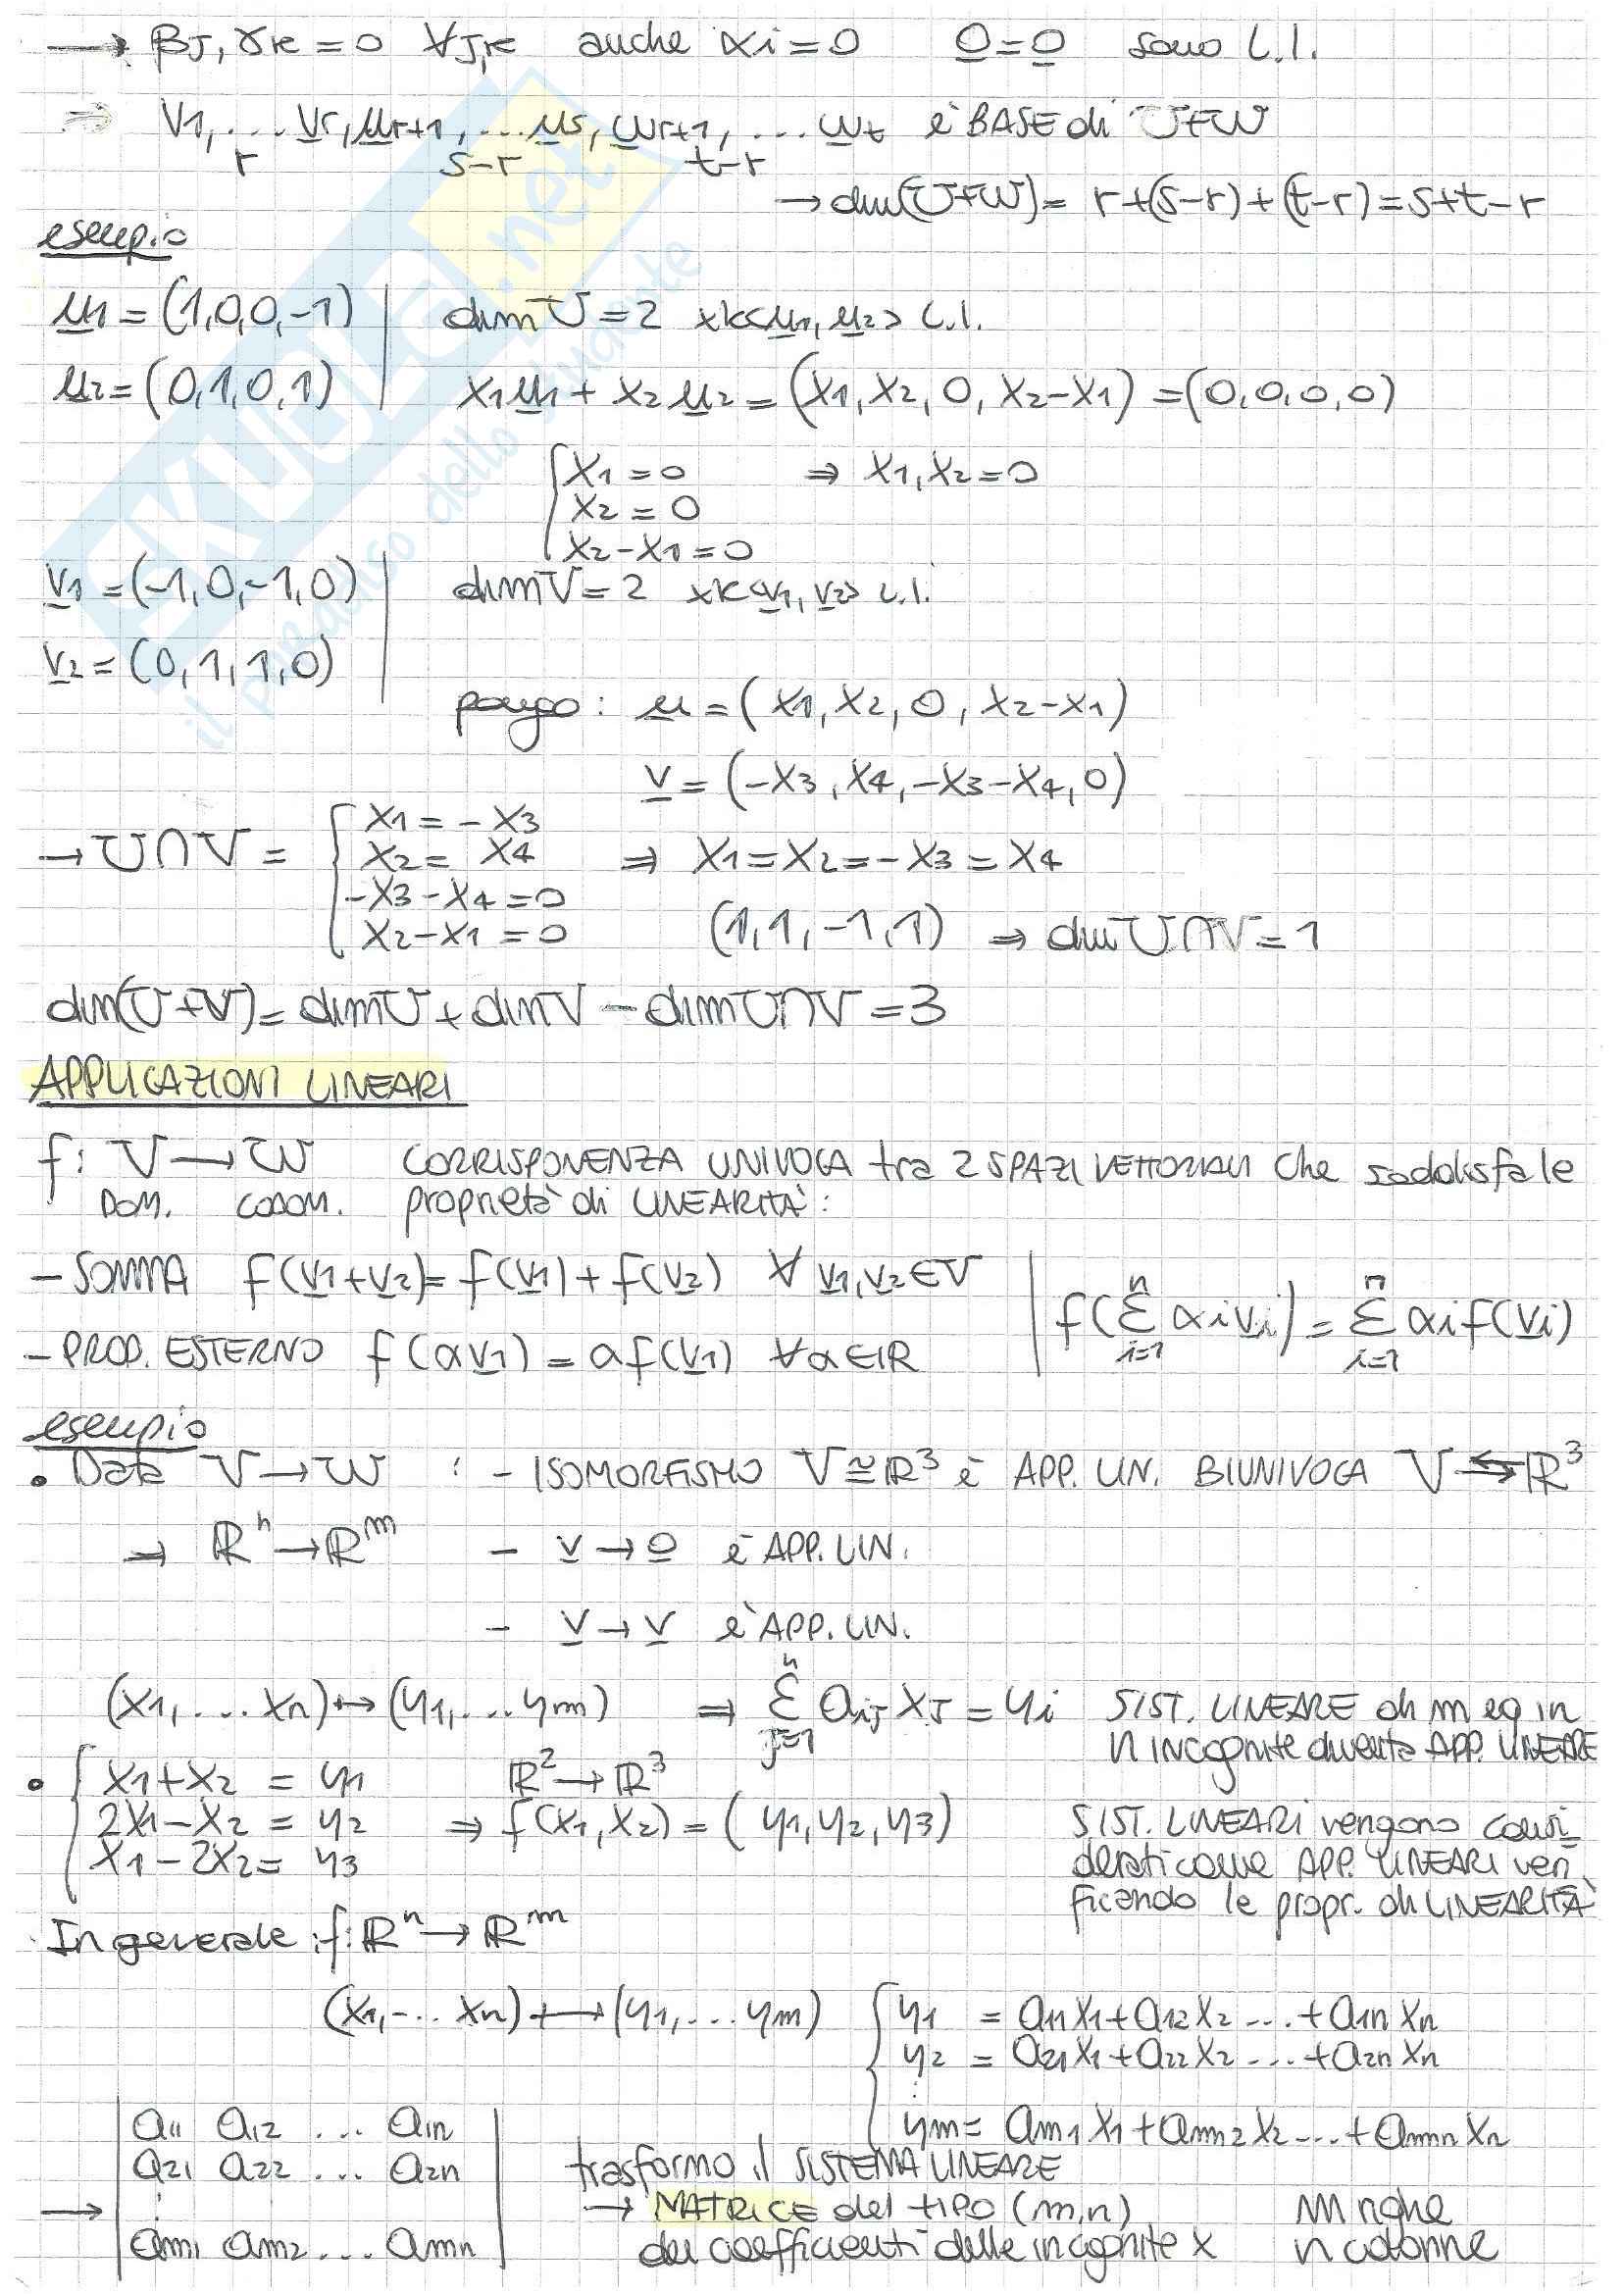 → βJ, γk = 0 ∀J,k anche αi = 0 0 = 0 sono L.I.
⇒ V1, ... Vr, ur+1, ... us, wr+1, ... wt è BASE di U+W
r s-r t-r
→ dim(U+W) = r+(s-r)+(t-r) = s+t-r
esempio
u1 = (1,0,0,-1) dim U = 2 xk <u1, u2> L.I.
u2 = (0,1,0,1) X1u1 + X2u2 = (X1, X2, 0, X2-X1) = (0,0,0,0)
X1 = 0 ⇒ X1, X2 = 0
X2 = 0
X2-X1 = 0
v1 = (-1,0,-1,0) dim V = 2 xk <v1, v2> L.I.
v2 = (0,1,1,0)
pongo: u = (X1, X2, 0, X2-X1)
v = (-X3, X4, -X3-X4, 0)
→ U∩V = { X1 = -X3
X2 = X4 ⇒ X1 = X2 = -X3 = X4
-X3-X4 = 0
X2-X1 = 0 (1,1,-1,1) ⇒ dim U∩V = 1
dim(U+V) = dim U + dim V - dim U∩V = 3
APPLICAZIONI LINEARI
f: V → W CORRISPONENZA UNIVOCA tra 2 SPAZI VETTORIALI che soddisfa le
DOM. CODOM. proprietà di LINEARITÀ:
- SOMMA f(v1+v2) = f(v1) + f(v2) ∀ v1, v2 ∈ V
f(Σ αivi) = Σ αif(vi) n i=1 n i=1
- PROD. ESTERNO f(αv1) = αf(v1) ∀α∈IR
esempio
• Data V → W : - ISOMORFISMO V ≅ ℝ³ è APP. LIN. BIUNIVOCA V ⇆ ℝ³
⇒ ℝⁿ → ℝᵐ - v → 0 è APP. LIN.
- v → v è APP. LIN.
(X1, ... Xn) ↦ (y1, ... ym) ⇒ Σ aiJ XJ = yi n J=1 SIST. LINEARE di m eq in
n incognite diventa APP. LINEARE
• { X1+X2 = y1 ℝ² → ℝ³
2X1-X2 = y2 ⇒ f(X1, X2) = (y1, y2, y3) SIST. LINEARI vengono consi
X1-2X2 = y3 derati come APP. LINEARI veri
ficando le propr. di LINEARITÀ
In generale: f: ℝⁿ → ℝᵐ
(X1, ... Xn) ↦ (y1, ... ym) { y1 = a11X1+a12X2 ... +a1nXn
y2 = a21X1+a22X2 ... +a2nXn
⋮
ym = am1X1+am2X2 ... +amnXn
→ | a11 a12 ... a1n |
a21 a22 ... a2n trasformo il SISTEMA LINEARE
⋮ → MATRICE del tipo (m,n) m righe
am1 am2 ... amn dei coefficienti delle incognite x n colonne
SKUOLA.net
il paradiso dello studente